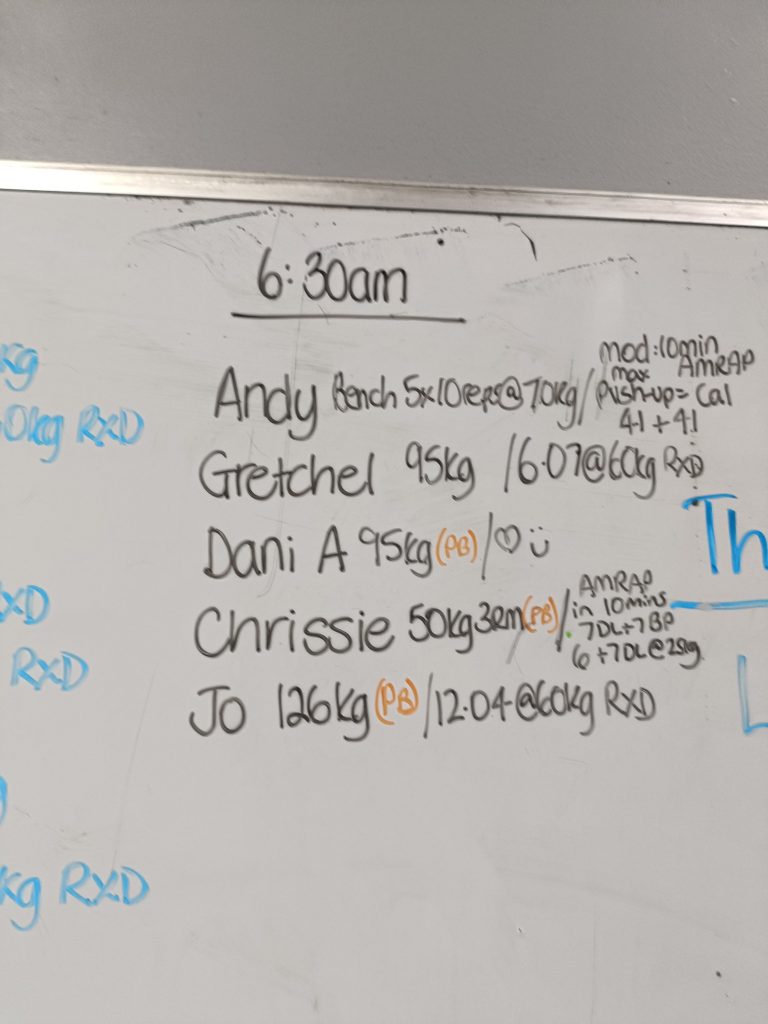 6:30am
kg
0kg RXD
XD
RXD
kg RXD
Andy Bench 5x10reps@70kg/
mod:10min
max AMRAP
push-up= Cal
41+41
Gretchel 95kg /6.07@60kg RXD
Dani A 95kg(PB)/♡ü
Chrissie 50kg3RM(PB)/
AMRAP
in 10mins
7DL+7BP
6+7DL@25kg
Jo 126kg(PB)/12.04@60kg RXD
Th
L